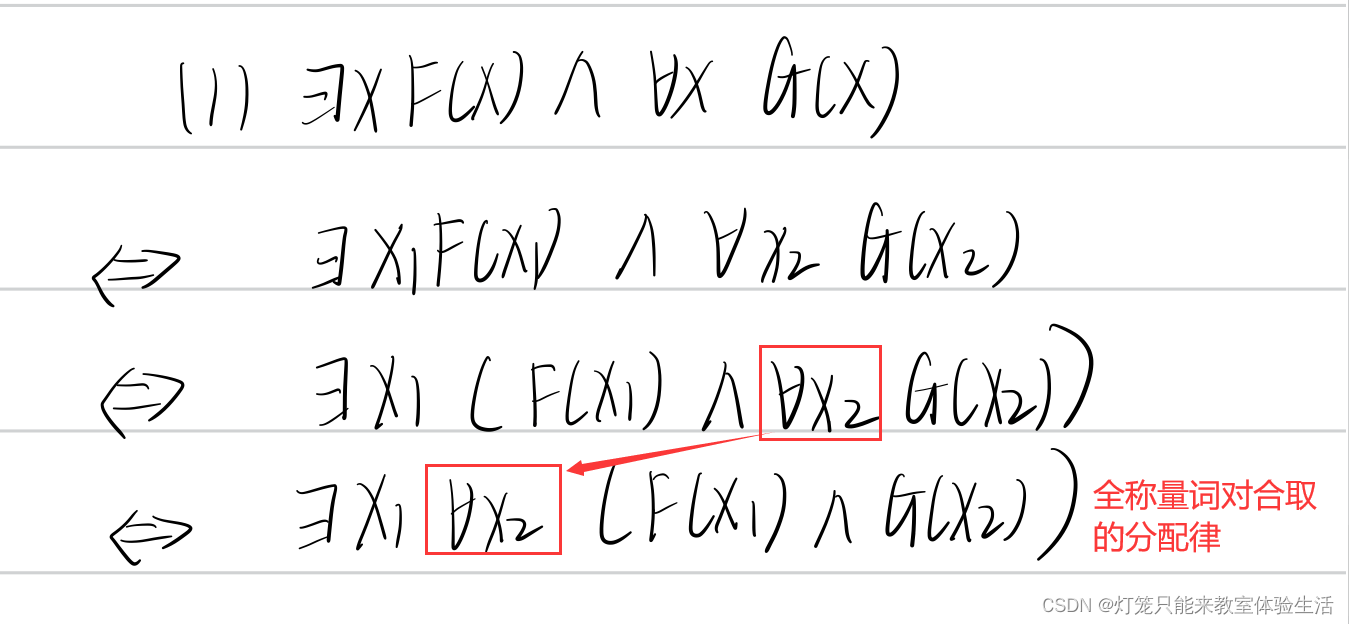 (1) ∃x F(x) ∧ ∀x G(x)
⇔ ∃x₁F(x₁) ∧ ∀x₂ G(x₂)
⇔ ∃x₁ (F(x₁) ∧ ∀x₂ G(x₂))
⇔ ∃x₁ ∀x₂ (F(x₁) ∧ G(x₂))
全称量词对合取
的分配律
CSDN @灯笼只能来教室体验生活